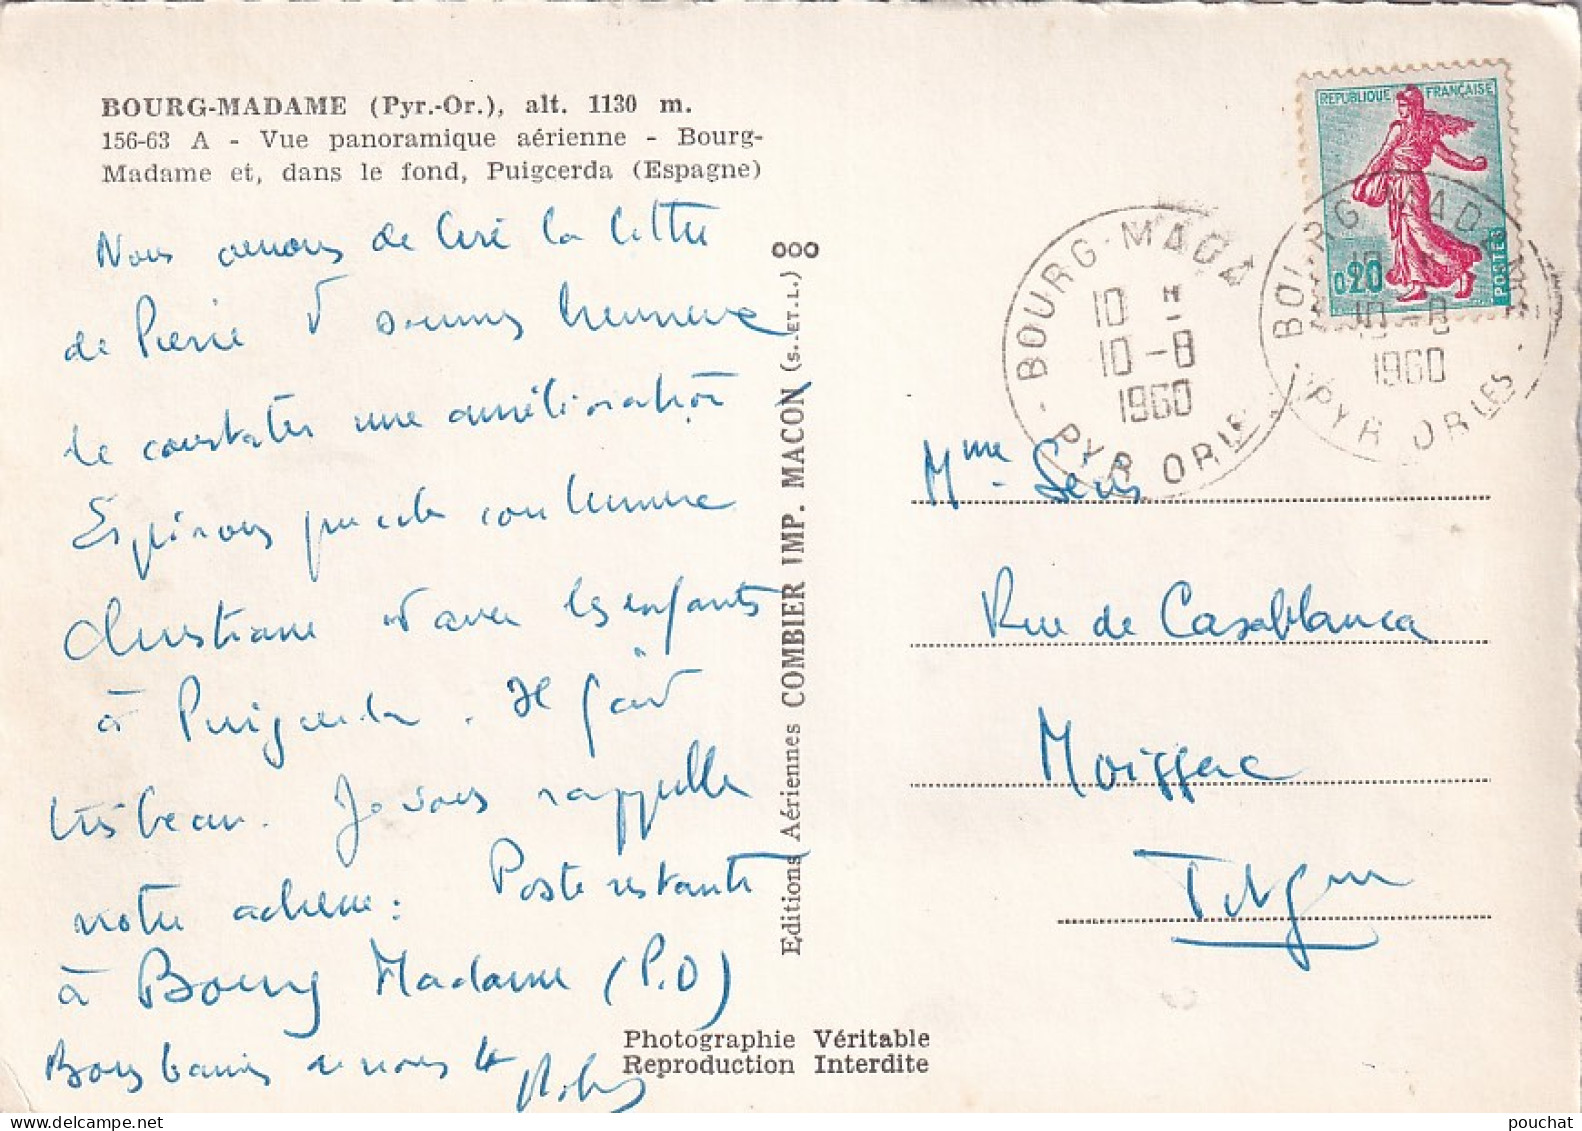 BOURG-MADAME (Pyr.-Or.), alt. 1130 m.
156-63 A - Vue panoramique aérienne - Bourg-
Madame et, dans le fond, Puigcerda (Espagne)
Nous venons de lire la lettre
de Pierre et sommes heureux
de constater une amélioration
Espérons que cela continuera
Christiane et avec les enfants
à Puigcerda. Il fait
très beau. Je vous rappelle
notre adresse : Poste restante
à Bourg Madame (P.O)
Bons baisers de nous 4
Editions Aériennes COMBIER IMP. MACON (S.-ET-L.)
Photographie Véritable
Reproduction Interdite
REPUBLIQUE FRANÇAISE
0,20
POSTES
BOURG-MADA
10 H
10-8
1960
PYR ORLES
BOURG MADA
10-8
1960
PYR ORLES
Mme
Rue de Casablanca
Moissac
T et Gne
pouchat